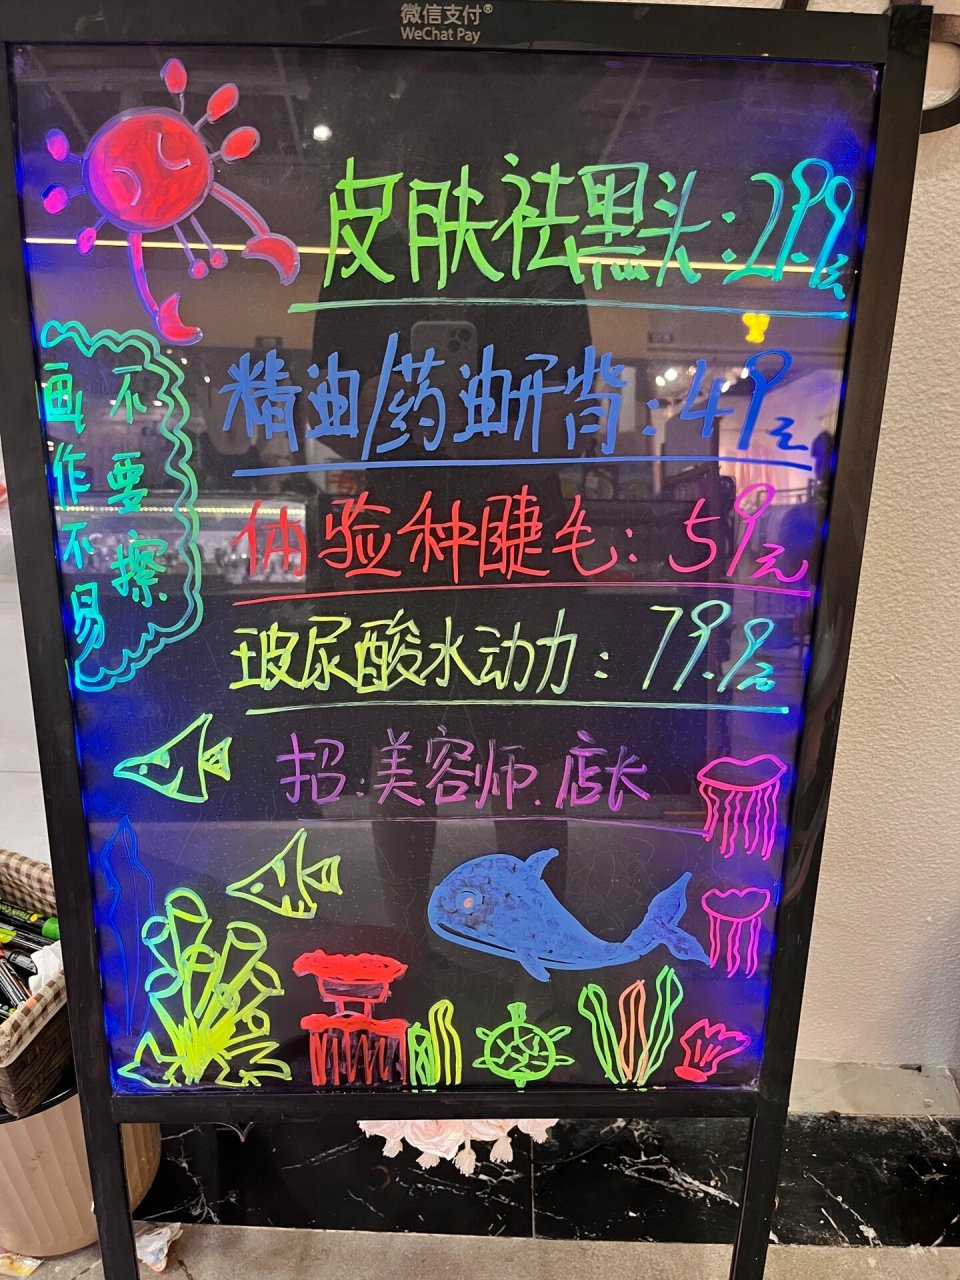 微信支付®
WeChat Pay
皮肤祛黑头:29.9元
精油/药油开背:49元
体验种睫毛:59元
玻尿酸水动力:79.9元
招:美容师.店长
不要擦
画作不易